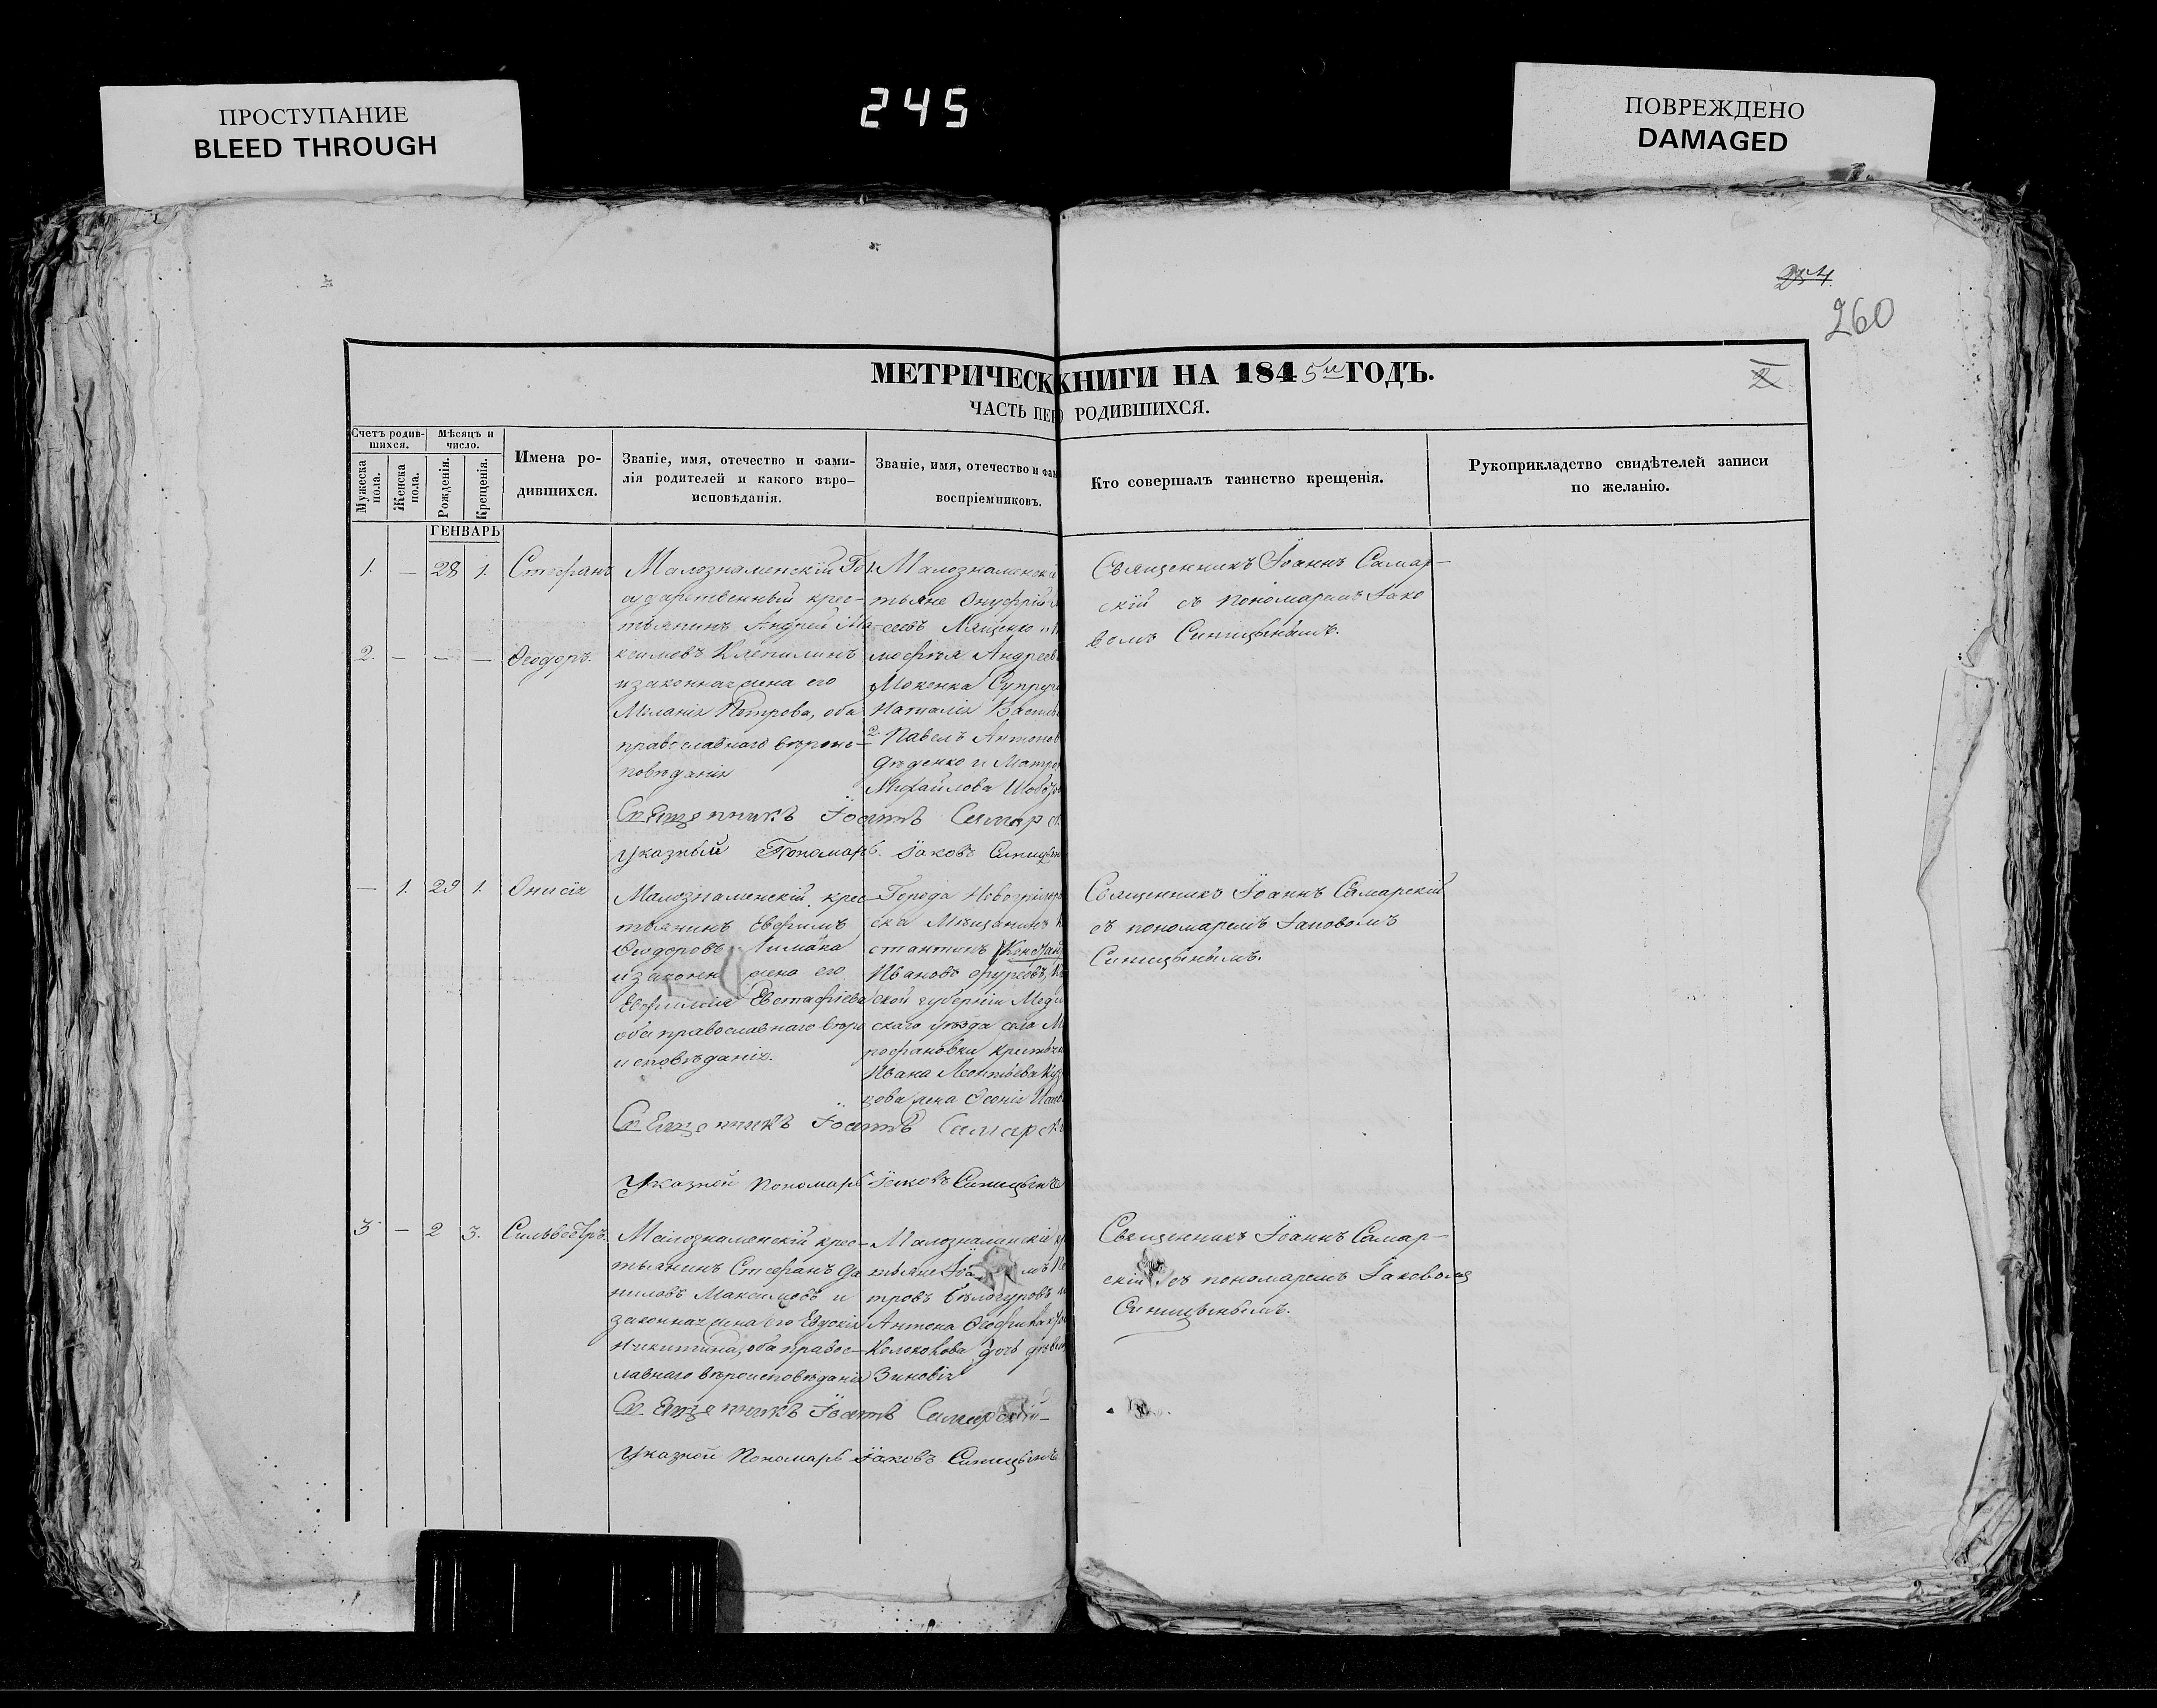 ПРОСТУПАНИЕ
BLEED THROUGH
245
ПОВРЕЖДЕНО
DAMAGED
260
МЕТРИЧЕСК КНИГИ НА 1845 ГОДЪ.
ЧАСТЬ ПЕР РОДИВШИХСЯ.
Счетъ родив-
шихся.
Мужеска
пола.
Женска
пола.
Мѣсяцъ и
число.
Рожденія.
Крещенія.
Имена ро-
дившихся.
Званіе, имя, отечество и фами-
лія родителей и какого вѣро-
исповѣданія.
Званіе, имя, отечество и фам
воспріемниковъ.
Кто совершалъ таинство крещенія.
Рукоприкладство свидѣтелей записи
по желанію.
ГЕНВАРЬ
1. — 28 1. Стефанъ
2. — — — Ѳеодоръ.
Малознаменскій Го
сударственный крес-
тьянинъ Андрей Ма-
ксимовъ
и законная жена его
Меланія Петрова, оба
православнаго вѣроис-
повѣданія
1. Малознаменскі
тьяне Онуфрій
Андреев
Мокенка Супруга
Наталія Васил
2 Павелъ Антонов
Дяденко и Матро
Михайлова
Священникъ Іоаннъ Самарск
Указный Пономарь Іаковъ Синицын
Священникъ Іоаннъ Самар-
скій съ пономаремъ Іако
вомъ Синицынымъ.
— 1. 29 1. Онисія
Малознаменскій крес-
тьянинъ Евфимъ
Ѳеодоровъ Лимака
и законн жена его
Евфимія Евстафіева
оба православнаго вѣро
исповѣданія.
Города Новогригор
ска Мѣщанинъ
стантинъ
Ивановъ
ской губерніи Меды
скаго уѣзда села М
рофановки
Ивана Леонтьева Куз
цова жена Ѳеонія
Священникъ Іоаннъ Самарск
Указной Пономарь Іаковъ Синицынъ
Священникъ Іоаннъ Самарскій
съ пономаремъ Іаковомъ
Синицынымъ.
3. — 2 3. Сильвестръ.
Малознаменскій крес-
тьянинъ Стефанъ Да
ниловъ Максимовъ и
законная жена его Евдокія
Никитина, оба правос-
лавнаго вѣроисповѣданія
Малознаменскіе кр
тьяне
тровъ Бѣлогуровъ и
Антона
Колокова дочь дѣви
Зиновія
Священникъ Іоаннъ Самарскій
Указной Пономарь Іаковъ Синицынъ
Священникъ Іоаннъ Самар-
скій съ пономаремъ Іаковомъ
Синицынымъ.